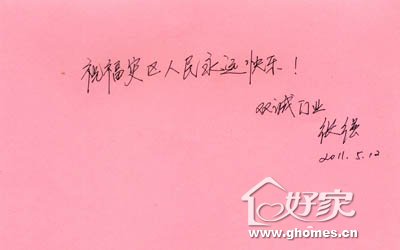 祝福灾区人民永远快乐！
双诚门业
张强
2011.5.12
好家
www.ghomes.cn